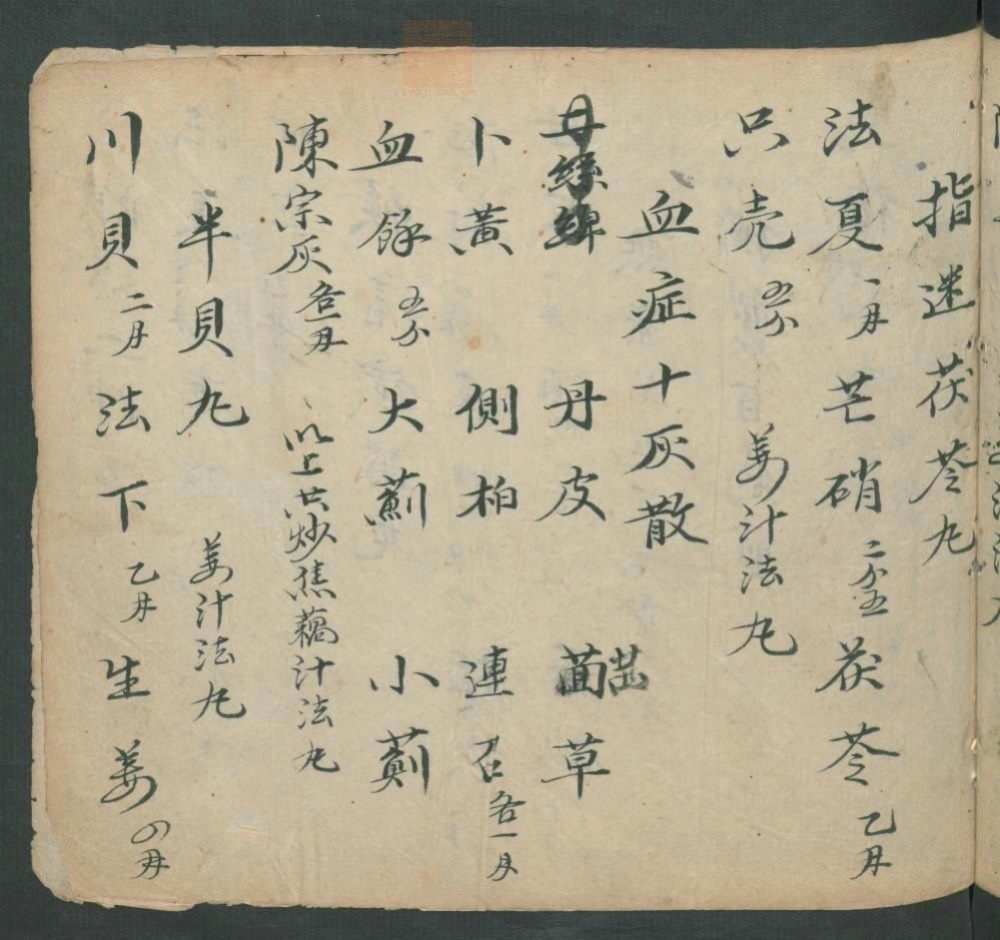 指迷茯苓丸
法夏一両芒硝二分五茯苓乙両
只壳五分 姜汁法丸
血症十灰散
丹皮 茜草
卜黃 側柏 連召各一両
血餘五分大薊 小薊
陳宗灰各一両 以上共炒焦藕汁法丸
半貝丸 姜汁法丸
川貝二両法下乙両生姜四両